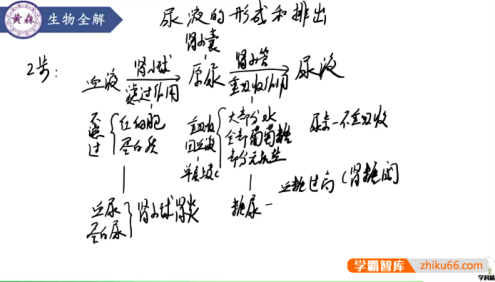 黄森 生物全解
尿液的形成和排出
肾小囊
2步:
血液 肾小球 滤过作用 原尿 肾小管 重吸收作用 尿液
不透过 红细胞 蛋白质
重吸收回血液
大部分水
全部葡萄糖
部分无机盐
尿素-不重吸收
血尿
蛋白尿
肾小球肾炎
糖尿-
血糖过高(肾糖阈
学霸智库
zhiku66.com